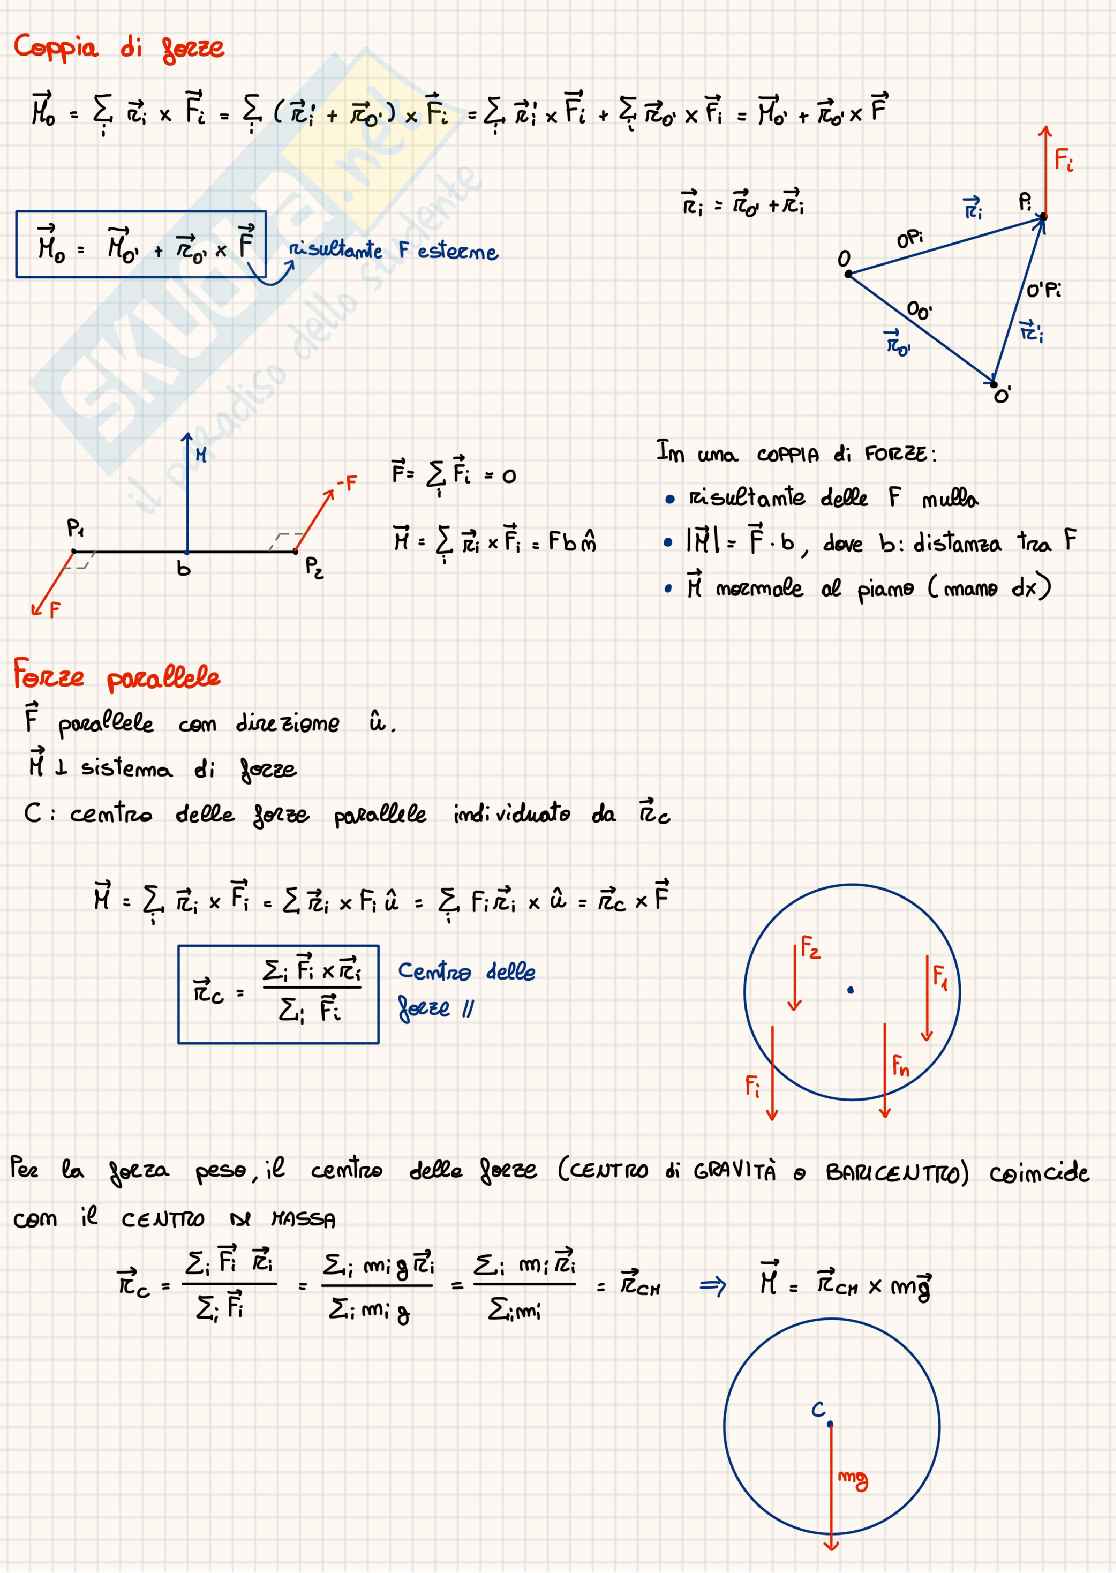 Coppia di forze
M⃗₀ = Σᵢ r⃗ᵢ × F⃗ᵢ = Σᵢ (r⃗ᵢ' + r⃗₀') × F⃗ᵢ = Σᵢ r⃗ᵢ' × F⃗ᵢ + Σᵢ r⃗₀' × F⃗ᵢ = M⃗₀' + r⃗₀' × F⃗
Fᵢ
r⃗ᵢ = r⃗₀' + r⃗ᵢ
r⃗ᵢ
Pᵢ
M⃗₀ = M⃗₀' + r⃗₀' × F⃗
risultante F esterne
OPᵢ
O
O'Pᵢ
OO'
r⃗₀'
r⃗'ᵢ
O'
SKUOLA.net
il paradiso dello studente
M
-F
P₁
b
P₂
F
F⃗ = Σᵢ F⃗ᵢ = 0
M⃗ = Σᵢ r⃗ᵢ × F⃗ᵢ = F b n̂
In una COPPIA di FORZE:
• risultante delle F nulla
• |M⃗| = F⃗ · b, dove b: distanza tra F
• M⃗ normale al piano (mano dx)
Forze parallele
F⃗ parallele con direzione û.
M⃗ ⊥ sistema di forze
C: centro delle forze parallele individuato da r⃗c
M⃗ = Σᵢ r⃗ᵢ × F⃗ᵢ = Σ r⃗ᵢ × Fᵢ û = Σᵢ Fᵢ r⃗ᵢ × û = r⃗c × F⃗
r⃗c = Σᵢ F⃗ᵢ × r⃗ᵢ / Σᵢ F⃗ᵢ
Centro delle
forze //
F₂
F₁
Fᵢ
Fn
Per la forza peso, il centro delle forze (CENTRO di GRAVITÀ o BARICENTRO) coincide
con il CENTRO DI MASSA
r⃗c = Σᵢ F⃗ᵢ r⃗ᵢ / Σᵢ F⃗ᵢ = Σᵢ mᵢ g r⃗ᵢ / Σᵢ mᵢ g = Σᵢ mᵢ r⃗ᵢ / Σᵢ mᵢ = r⃗CM ⇒ M⃗ = r⃗CM × mg⃗
C
mg